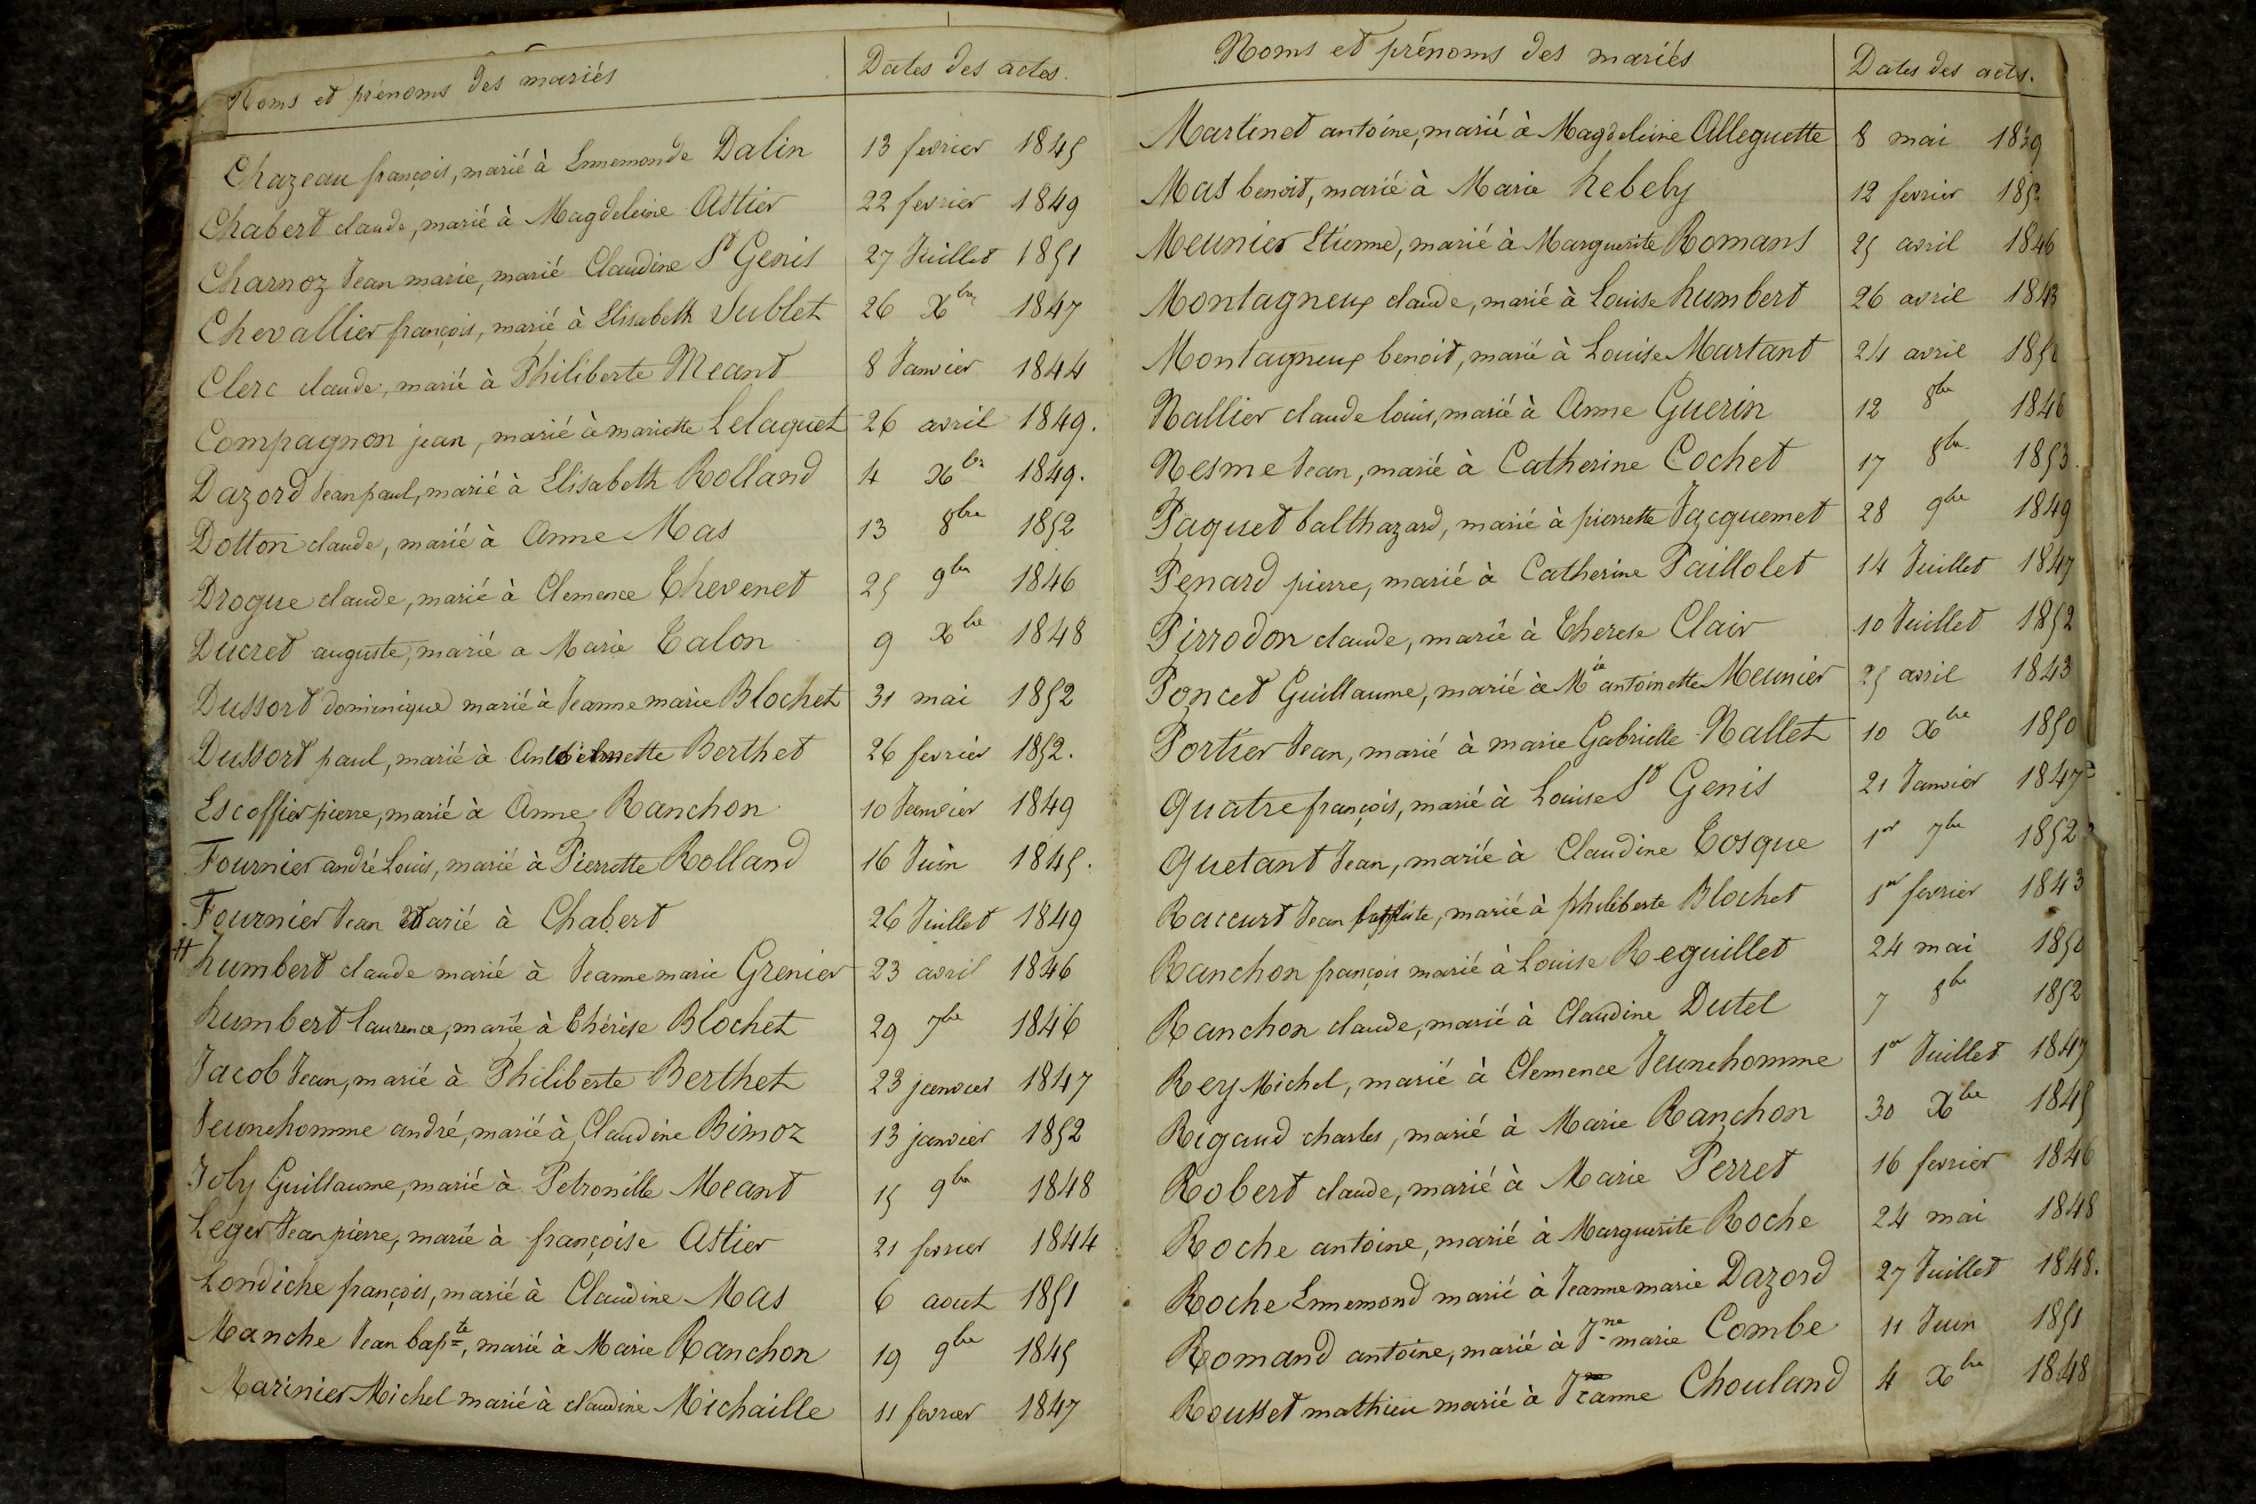 Noms et prénoms des mariés Dates des actes.
Chazeau françois, marié à Ennemonde Dalin 13 fevrier 1845
Chabert claude, marié à Magdeleine Astier 22 fevrier 1849
Charnoz Jean marie, marié Claudine St Genis 27 Juillet 1851
Chevallier françois, marié à Elisabeth Sublet 26 Xbre 1847
Clerc claude, marié à Philiberte Meant 8 Janvier 1844
Compagnon jean, marié à mariette Lelaquet 26 avril 1849.
Dazord Jean paul, marié à Elisabeth Rolland 4 Xbre 1849.
Dotton claude, marié à Anne Mas 13 8bre 1852
Drogue claude, marié à Clemence Thevenet 25 9bre 1846
Ducret auguste, marié a Marie Talon 9 Xbre 1848
Dussort dominique marié à Jeanne marie Blochet 31 mai 1852
Dussort paul, marié à Berthet 26 fevrier 1852.
Escoffier pierre, marié à Anne Ranchon 10 Janvier 1849
Fournier andré Louis, marié à Pierrette Rolland 16 Juin 1845.
Fournier Jean Marié à Chabert 26 Juillet 1849
humbert claude marié à Jeanne marie Grenier 23 avril 1846
humbert laurence, marié à Thérèse Blochet 29 7bre 1846
Jacob Jean, marié à Philiberte Berthet 23 janvier 1847
Jeunehomme andré, marié à Claudine Bimoz 13 janvier 1852
Joly Guillaume, marié à Petronille Meant 15 9bre 1848
Leger Jean pierre, marié à françoise Astier 21 fevrier 1844
Londiche françois, marié à Claudine Mas 6 aout 1851
Manche Jean bapte, marié à Marie Ranchon 19 9bre 1845
Marinier Michel marié à claudine Michaille 11 fevrier 1847
Noms et prénoms des mariés Dates des actes.
Martinet antoine, marié à Magdeleine Alleguette 8 mai
Mas benoit, marié à Marie hebely 12 fevrier
Meunier Etienne, marié à Marguerite Romans 25 avril 1846
Montagneux claude, marié à Louise humbert 26 avril 1843
Montagneux benoit, marié à Louise Martant 24 avril
Nallier claude louis, marié à Anne Guerin 12 8bre 1846
Nesme Jean, marié à Catherine Cochet 17 8bre 1853.
Paquet balthazard, marié à pierrette Jacquemet 28 9bre 1849
Penard pierre, marié à Catherine Paillolet 14 Juillet 1847
Pirrodon claude, marié à Therese Clair 10 Juillet 1852
Poncet Guillaume, marié à Mie antoinette Meunier 25 avril 1843
Portier Jean, marié à marie Gabrielle Nallet 10 Xbre 1850
Quatre françois, marié à Louise St Genis 21 Janvier 1847
Quetant Jean, marié à Claudine Tosque 1er 7bre 1852
Raccurt Jean baptiste, marié à philiberte Blochet 1er fevrier 1843
Ranchon françois marié à Louise Reguillet 24 mai 1850
Ranchon claude, marié à Claudine Dutel 7 8bre 1852
Rey Michel, marié à Clemence Jeunehomme 1er Juillet 1847
Rigaud charles, marié à Marie Ranchon 30 Xbre 1845
Robert claude, marié à Marie Perret 16 fevrier 1846
Roche antoine, marié à Marguerite Roche 24 mai 1848
Roche Ennemond marié à Jeanne marie Dazord 27 Juillet 1848.
Romand antoine, marié à Jne marie Combe 11 Juin 1851
Rousset mathieu marié à Jeanne Chouland 4 Xbre 1848